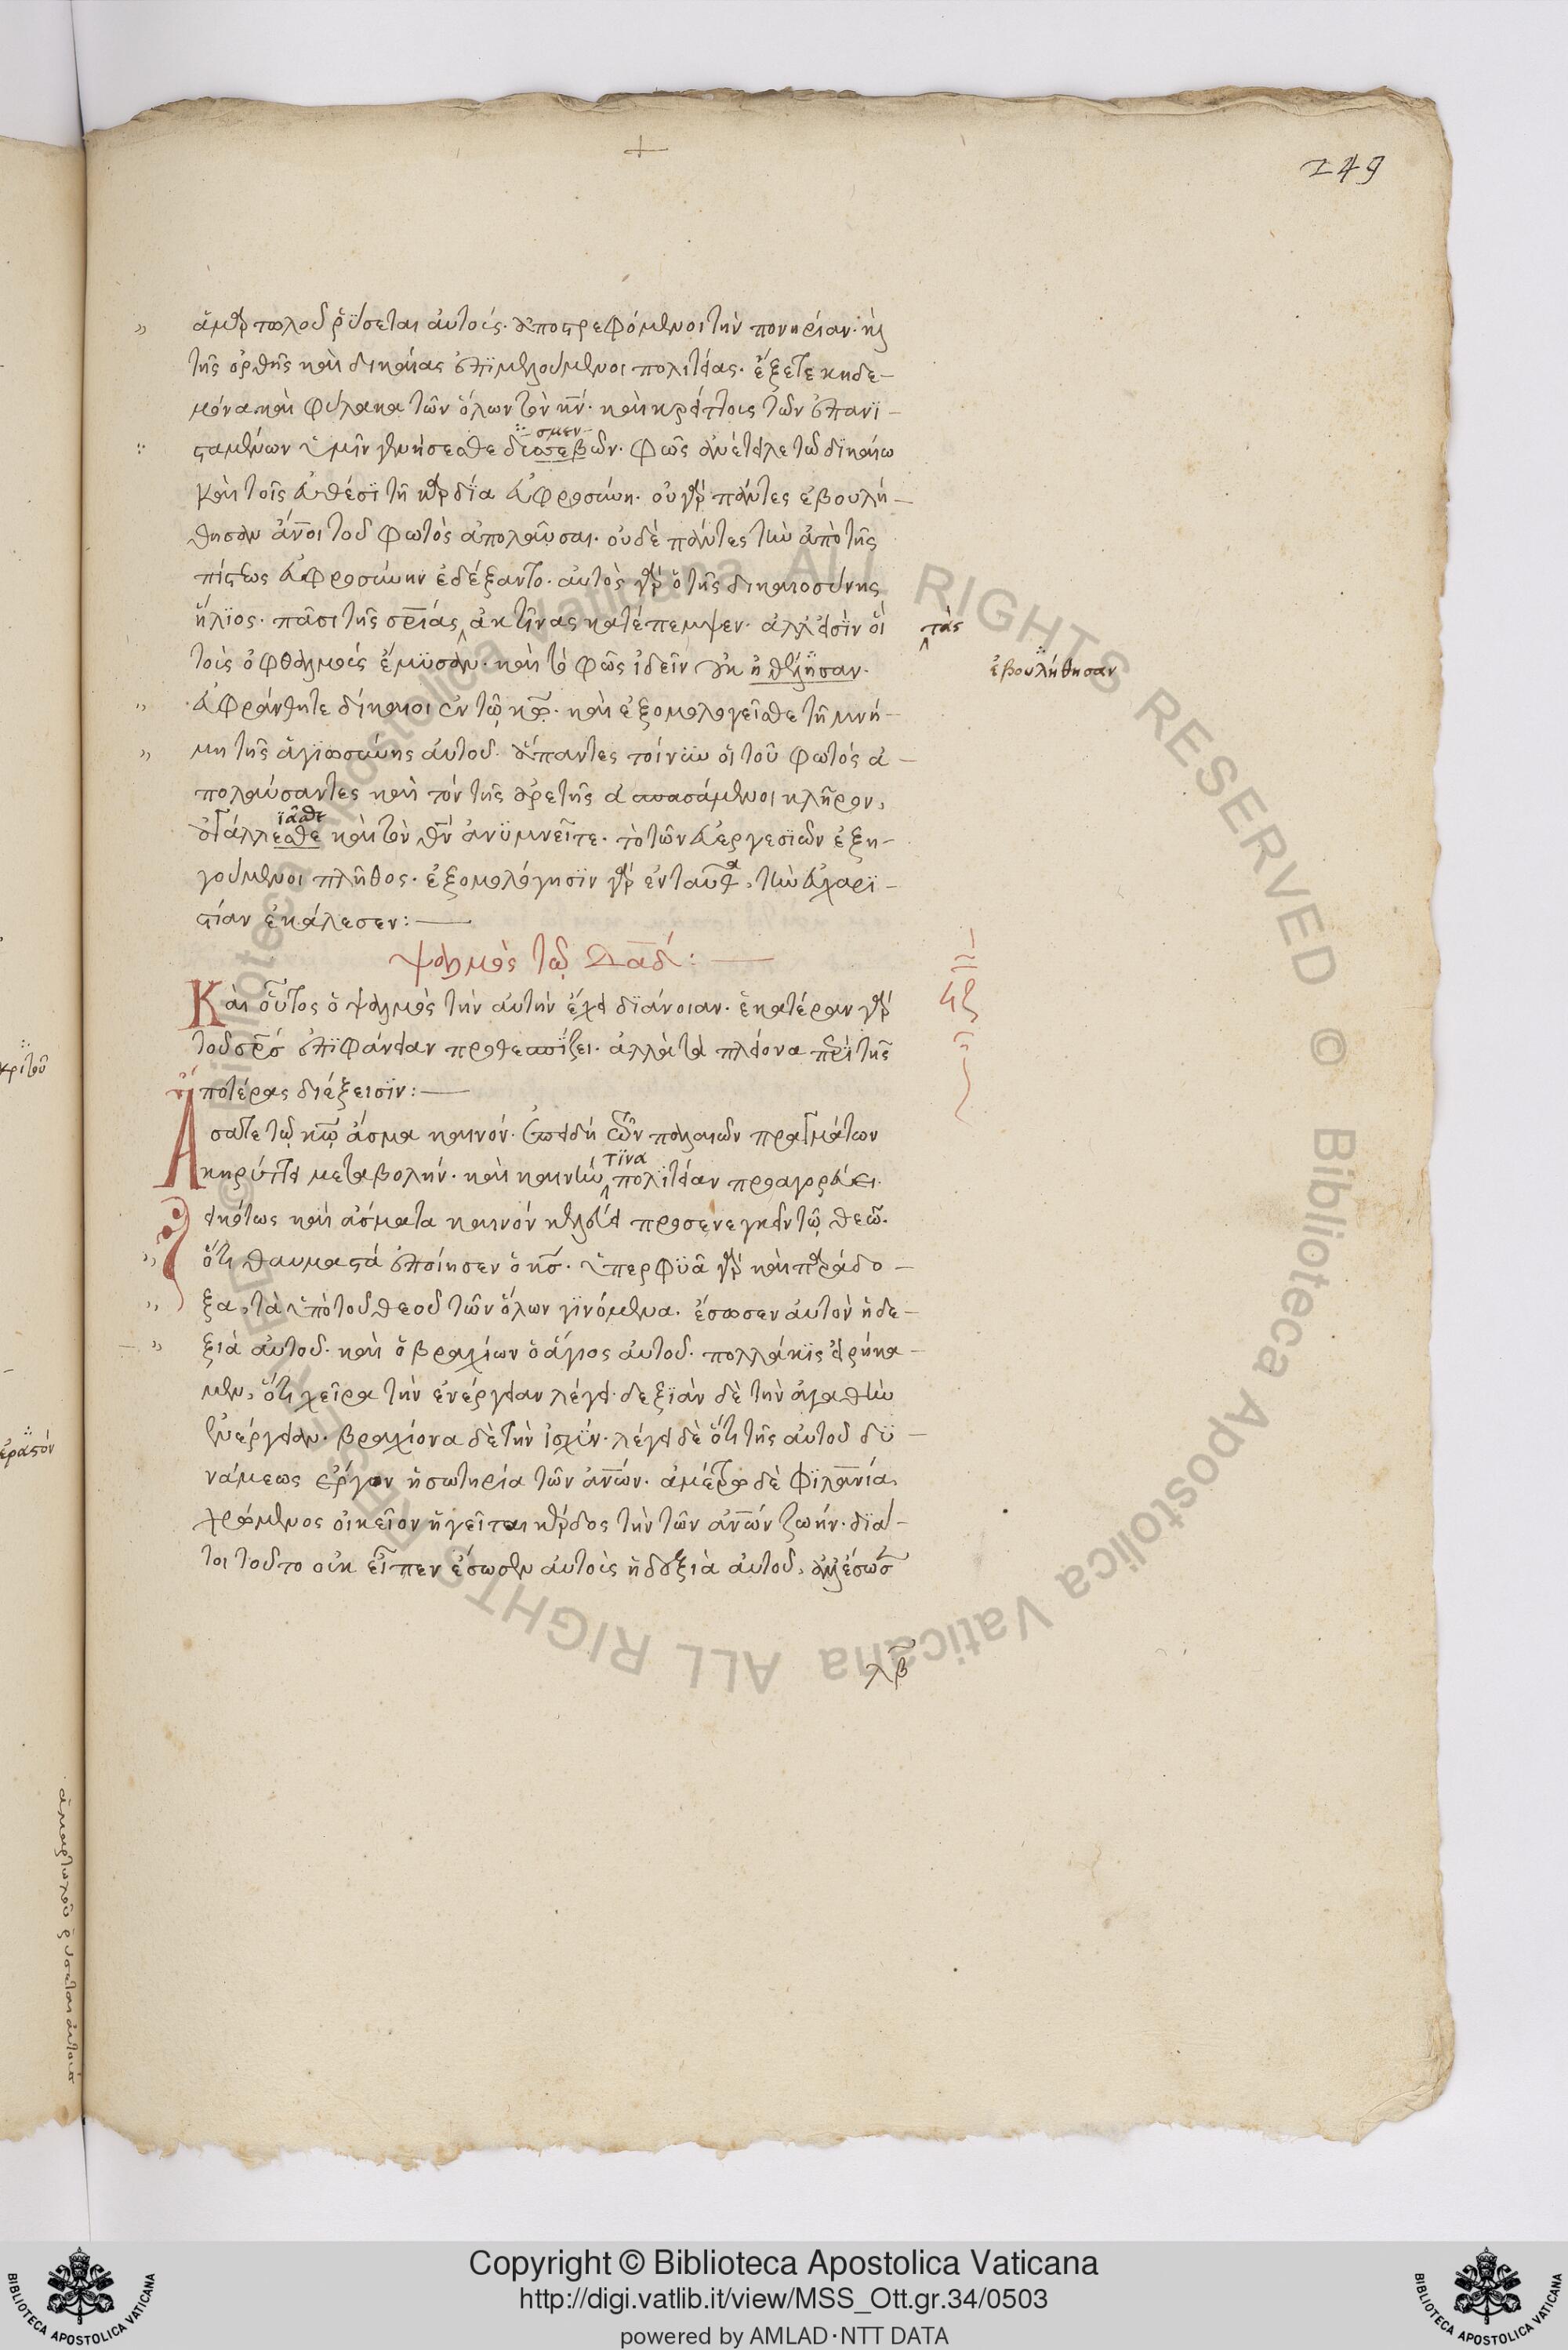 249
ἁμαρτωλοῦ ῥύσεται αὐτούς. ἀποστρεφόμενοι τὴν πονηρίαν. καὶ
τῆς ὀρθῆς καὶ δικαίας ἐπιμελούμενοι πολιτείας. ἕξετε κηδε-
μόνα καὶ φύλακα τῶν ὅλων τὸν κ̅ν̅. καὶ κρείττους τῶν ἐπανϊ-
σμεν
σταμένων ὑμῖν γενήσεσθε δυσσεβῶν. φῶς ἀνέτειλε τῷ δικαίω
καὶ τοῖς εὐθέσϊ τῇ καρδία εὐφροσύνη. οὐ γὰρ πάντες ἐβουλή-
θησαν ἄν̅οι τοῦ φωτὸς ἀπολαῦσαι. οὐδὲ πάντες τὴν ἀπὸ τῆς
πίστεως εὐφροσύνην ἐδέξαντο. αὐτὸς γὰρ ὁ τῆς δικαιοσύνης
ἥλϊος. πᾶσι τῆς σ̅ρ̅ίας ἀκτῖνας κατέπεμψεν. ἀλλ' εἰσὶν οἳ τὰς
τοὺς ὀφθαλμοὺς ἔμϋσαν. καὶ τὸ φῶς ἰδεῖν οὐκ ἠθέλησαν. ἐβουλήθησαν
εὐφράνθητε δίκαιοι ἐν τῷ κ̅ω̅. καὶ ἐξομολογεῖσθε τῇ μνή-
μη τῆς ἁγιωσύνης αὐτοῦ. ἅπαντες τοίνυν οἱ τοῦ φωτὸς ἀ-
πολαύσαντες καὶ τὸν τῆς ἀρετῆς ἀσπασάμενοι κλῆρον,
ϊᾶσθε
ἀγάλλεσθε καὶ τὸν θ̅ν̅ ἀνϋμνεῖτε. τὸ τῶν εὐεργεσϊῶν ἐξη-
γούμενοι πλῆθος. ἐξομολόγησϊν γὰρ ἐνταῦθα, τὴν εὐχαρϊ-
στίαν ἐκάλεσεν:—
ψαλμὸς τῷ Δα̅δ:—
Ϟζ
Καὶ οὗτος ὁ ψαλμὸς τὴν αὐτὴν ἔχει δϊάνοιαν. ἑκατέραν γὰρ
τοῦ σ̅ρ̅ς ἐπϊφάνειαν προθεσπίζει. ἀλλὰ τὰ πλείονα περὶ τῆς
προτέρας διέξεισϊν:—
Ἄσατε τῷ κ̅ω̅ ᾆσμα καινόν. ἐπειδὴ τῶν παλαιῶν πραγμάτων
τϊνα
κηρύττει μεταβολήν. καὶ καινὴν πολϊτείαν προαγορεύει.
εἰκότως καὶ ᾄσματα καινὸν κελεύει προσενεγκεῖν τῷ θεῶ.
ὅτι θαυμαστὰ ἐποίησεν ὁ κ̅ς̅. ὑπερφϋᾶ γὰρ καὶ παράδο-
ξα, τὰ ὑπὸ τοῦ θεοῦ τῶν ὅλων γϊνόμενα. ἔσωσεν αὐτὸν ἡ δε-
ξιὰ αὐτοῦ. καὶ ὁ βραχίων ὁ ἅγιος αὐτοῦ. πολλάκϊς εἰρήκα-
μεν, ὅτι χεῖρα τὴν ἐνέργειαν λέγει. δεξϊὰν δὲ τὴν ἀγαθὴν
ἐνέργειαν. βραχίονα δὲ τὴν ἰσχύν. λέγει δὲ ὅτι τῆς αὐτοῦ δϋ-
νάμεως ἔργον ἡ σωτηρία τῶν ἀν̅ων. ἀμέτρω δὲ φϊλαν̅ία
χρώμενος οἰκεῖον ἡγεῖται κέρδος τὴν τῶν ἀν̅ων ζωήν. δϊά-
τοι τοῦτο οὐκ εἶπεν ἔσωσεν αὐτοὺς ἡ δεξιὰ αὐτοῦ, ἀλλ' ἔσωσ
λβ